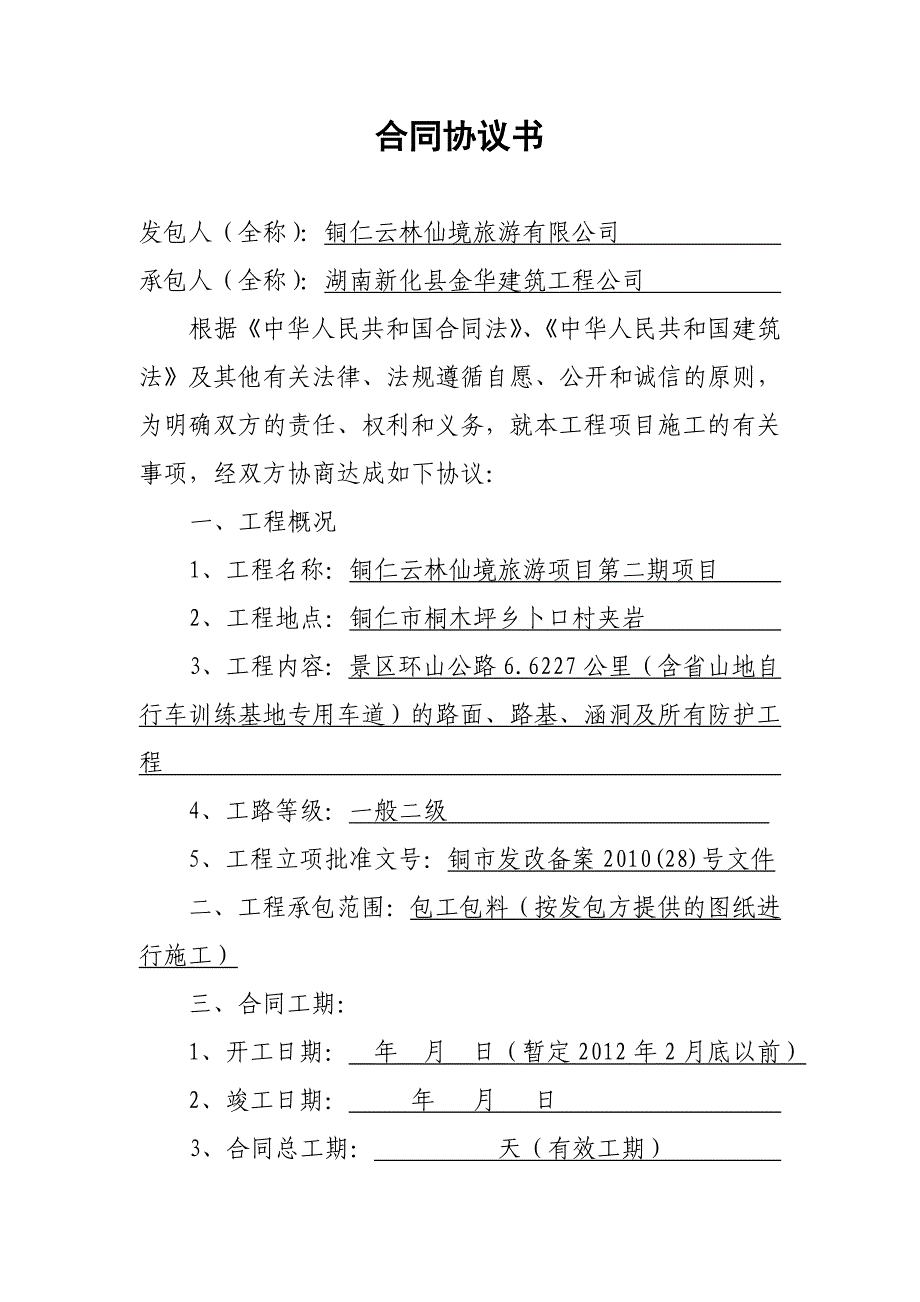 合同协议书
发包人（全称）：铜仁云林仙境旅游有限公司
承包人（全称）：湖南新化县金华建筑工程公司
根据《中华人民共和国合同法》、《中华人民共和国建筑
法》及其他有关法律、法规遵循自愿、公开和诚信的原则，
为明确双方的责任、权利和义务，就本工程项目施工的有关
事项，经双方协商达成如下协议：
一、工程概况
1、工程名称：铜仁云林仙境旅游项目第二期项目
2、工程地点：铜仁市桐木坪乡卜口村夹岩
3、工程内容：景区环山公路 6.6227 公里（含省山地自
行车训练基地专用车道）的路面、路基、涵洞及所有防护工
程
4、工路等级：一般二级
5、工程立项批准文号：铜市发改备案 2010(28)号文件
二、工程承包范围：包工包料（按发包方提供的图纸进
行施工）
三、合同工期：
1、开工日期： 年 月 日（暂定 2012 年 2 月底以前）
2、竣工日期： 年 月 日
3、合同总工期： 天（有效工期）